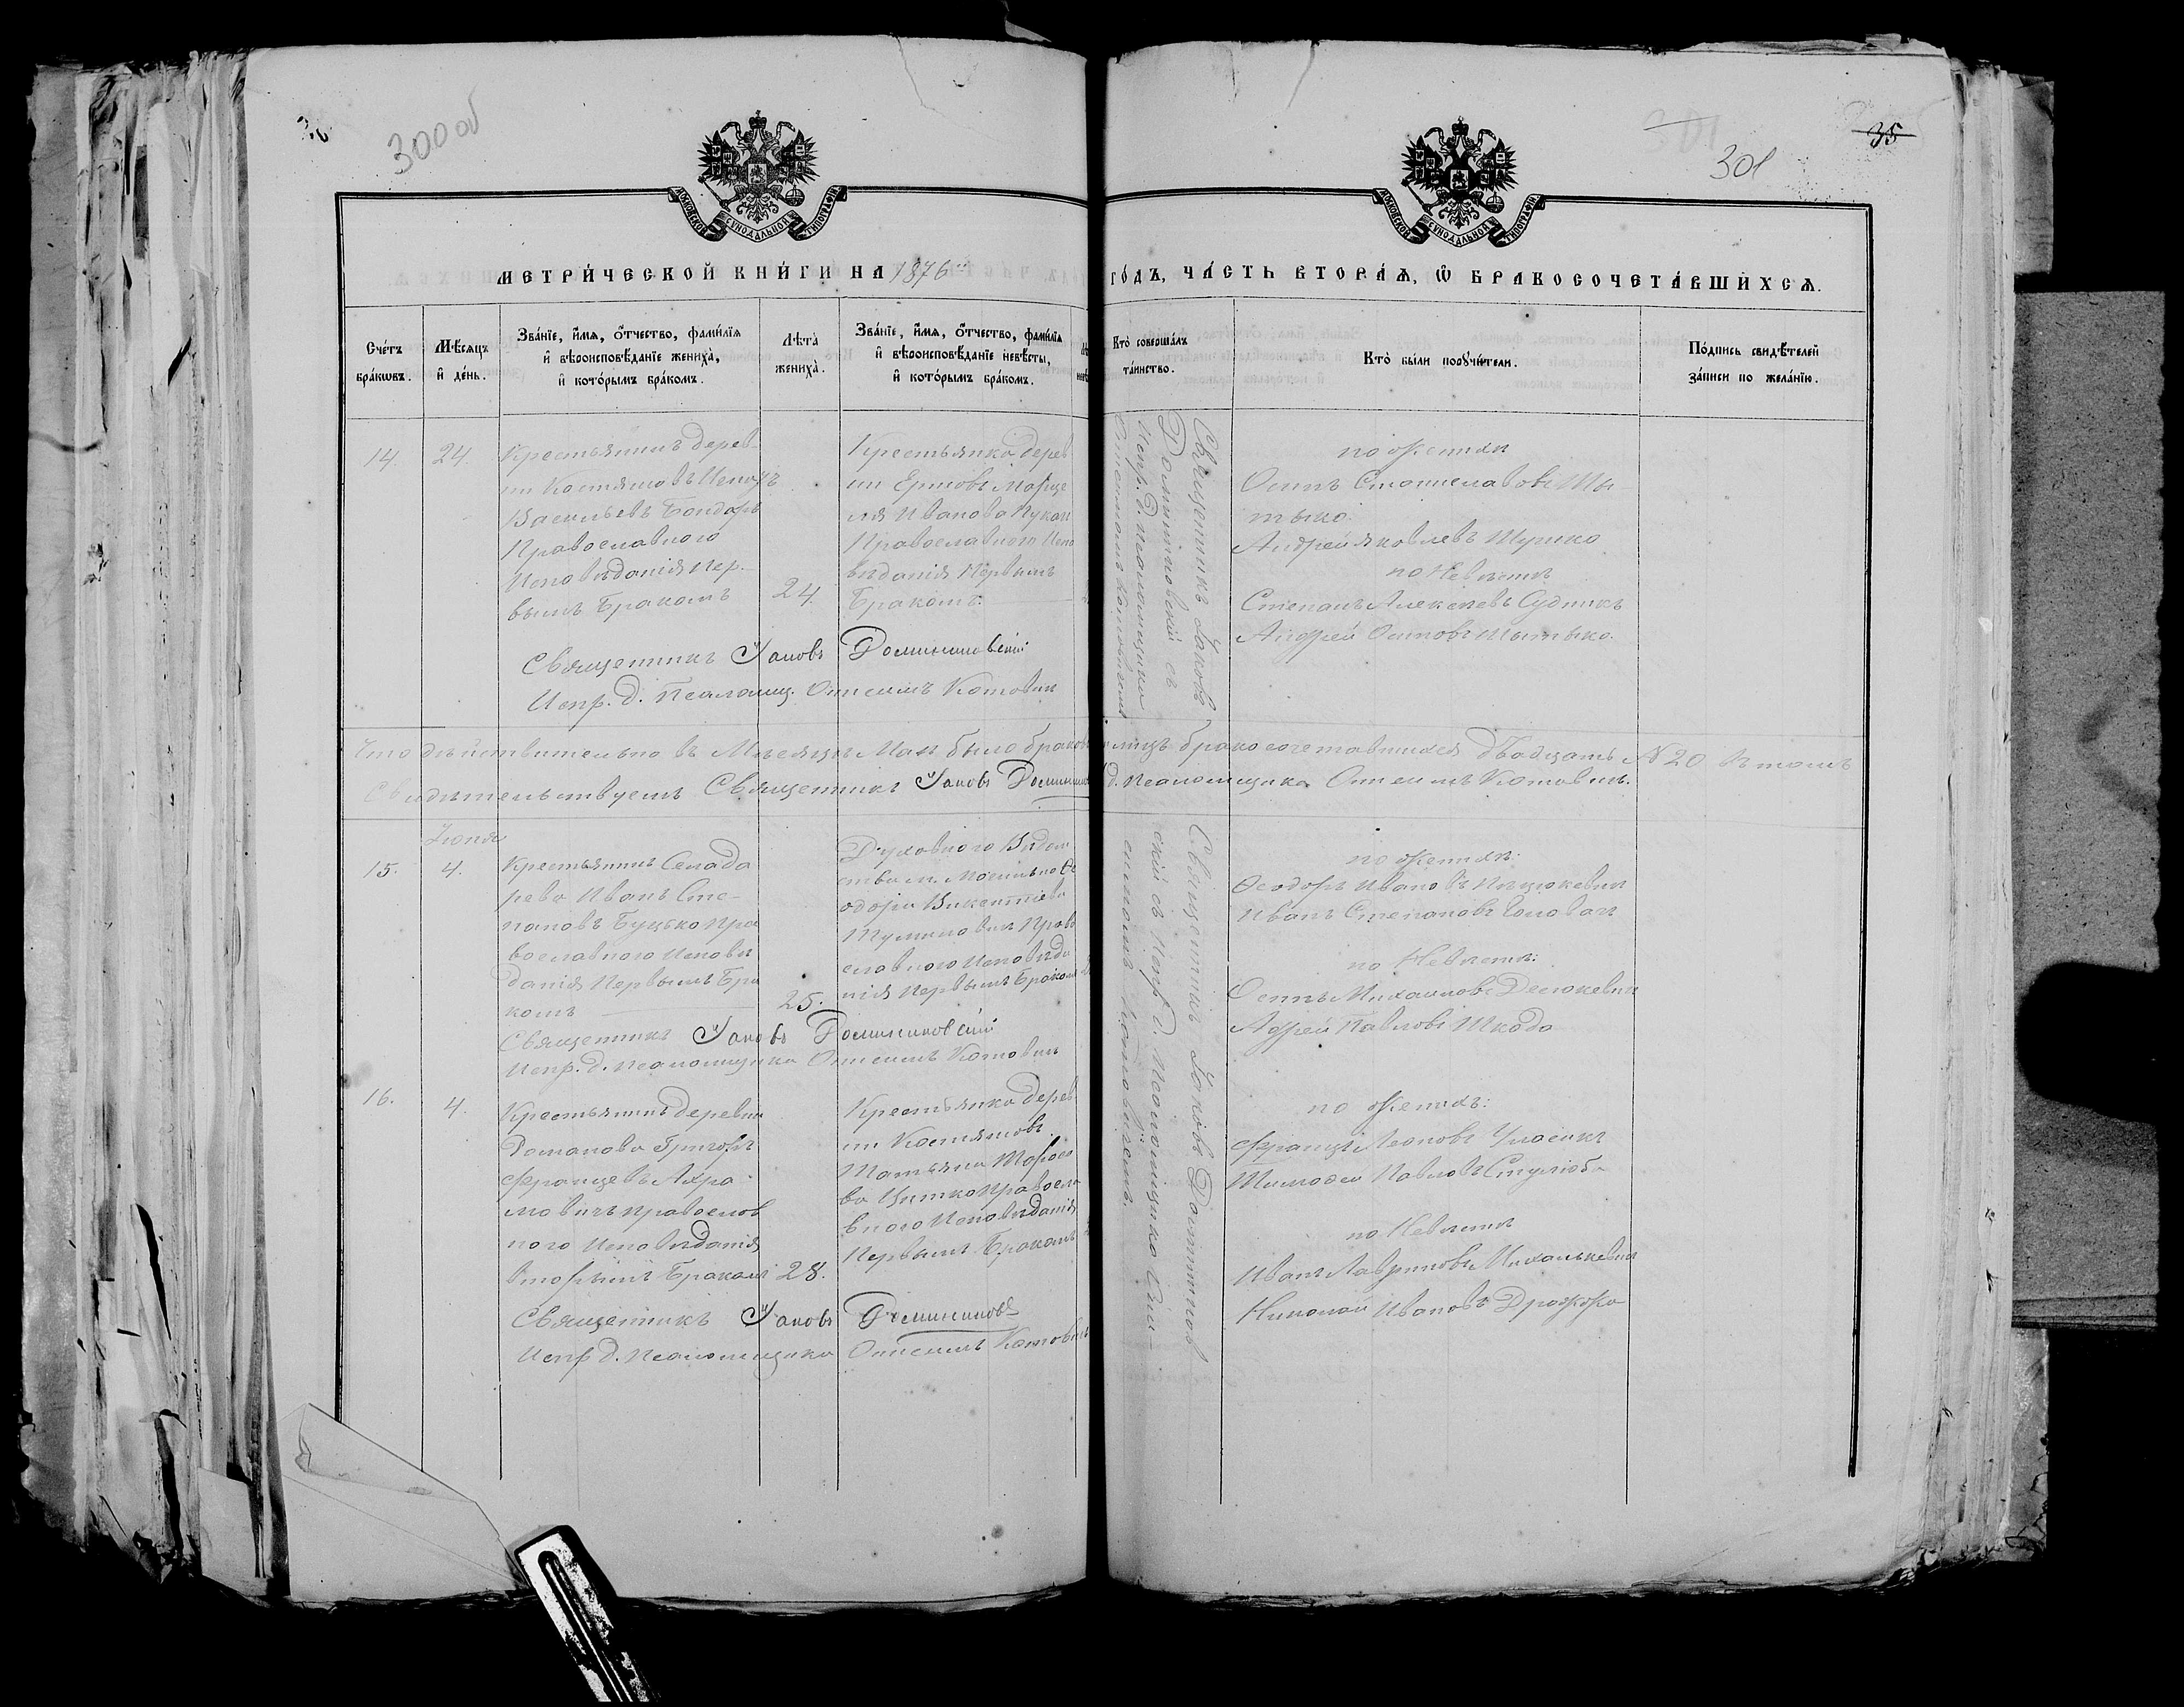 300 об
301
35
МОСКОВСКОЙ СѴНОДАЛЬНОЙ ТИПОГРАФІИ
МОСКОВСКОЙ СѴНОДАЛЬНОЙ ТИПОГРАФІИ
МЕТРИ́ЧЕСКОЙ КНИ́ГИ НА 1876
ГО́ДЪ, ЧА́СТЬ ВТОРА́Ѧ, Ѽ БРАКОСОЧЕТА́ВШИХСѦ.
Сче́тъ бра́кѡвъ.
Мѣ́сяцъ и҆ де́нь.
Зва́нїе, и҆́мѧ, о҆́тчество, фами́лїѧ
и҆ вѣроисповѣ́данїе жениха̀,
и҆ кото́рымъ бра́комъ.
Лѣта̀ жениха̀.
Зва́нїе, и҆́мѧ, о҆́тчество, фами́лїѧ
и҆ вѣроисповѣ́данїе невѣ́сты,
и҆ кото́рымъ бра́комъ.
Кто̀ соверша́лъ та́инство.
Кто̀ бы́ли порꙋчи́тели.
По́дпись свидѣ́телей за́писи по жела́нїю.
14.
24.
Крестьянинъ дерев-
ни Костяшовъ
Васильевъ Бондарь
Православного
Исповѣданія Пер-
вымъ Бракомъ
24.
Крестьянка дерев
ни
Иванова
Православного Испо
вѣданія Первымъ
Бракомъ.
Священникъ Іаковъ
Доминиковскій съ
Испр. д. Псаломщика
Онисимомъ Котовичемъ
по Женихѣ
Осипъ Станиславовъ Мы-
тько.
Андрей Яковлевъ Шушко
по Невѣстѣ
Степанъ Алексѣевъ Судникъ
Андрей Осиповъ Мытько.
Священникъ Іаковъ Доминиковскій
Испр. д. Псаломщ. Онисимъ Котовичъ
Что дѣйствительно въ Мѣсяцѣ Маѣ было браков лицъ бракосочетавшихся двадцать № 20 въ томъ
Свидѣтельствуемъ Священникъ Іаковъ Доминик д. Псаломщика Онисимъ Котовичъ.
Іюня
15.
4.
Крестьянинъ Села Да
рева Иванъ Сте-
пановъ Буцько Пра
вославного Исповѣ
данія Первымъ Бра
комъ
25.
Духовного Вѣдом
ства м. Ѳе
одора Викентіева
Тумиловичъ Право
славного Исповѣда
нія Первымъ Браком
Священникъ Іаковъ Домиников
скій съ Испр. д. Псаломщика Они-
симомъ Котовичемъ.
по Женихѣ:
Ѳеодоръ Ивановъ
Иванъ Степановъ Головач
по Невѣстѣ:
Осипъ Михаиловъ Десюкевич
Адрей Павловъ Шкода
Священникъ Іаковъ Доминиковскій
Испр. д. Псаломщика Онисимъ Котовичъ
16.
4.
Крестьянинъ деревни
Доманова Григорій
Францевъ Ахра-
мовичъ православ
ного Исповѣданія
вторымъ Бракомъ
28.
Крестьянка дерев
ни Костяшовъ
Татьяна Тарасо
ва Цитко Правосла
вного Исповѣданія
Первымъ Бракомъ
по Женихѣ:
Францъ Леоновъ
Тимоѳей Павловъ
по Невѣстѣ
Иванъ Лавриновъ Михалькевич
Николай Ивановъ Дрожжа
Священникъ Іаковъ Доминиковс
Испр. д. Псаломщика Онисимъ Котовичъ